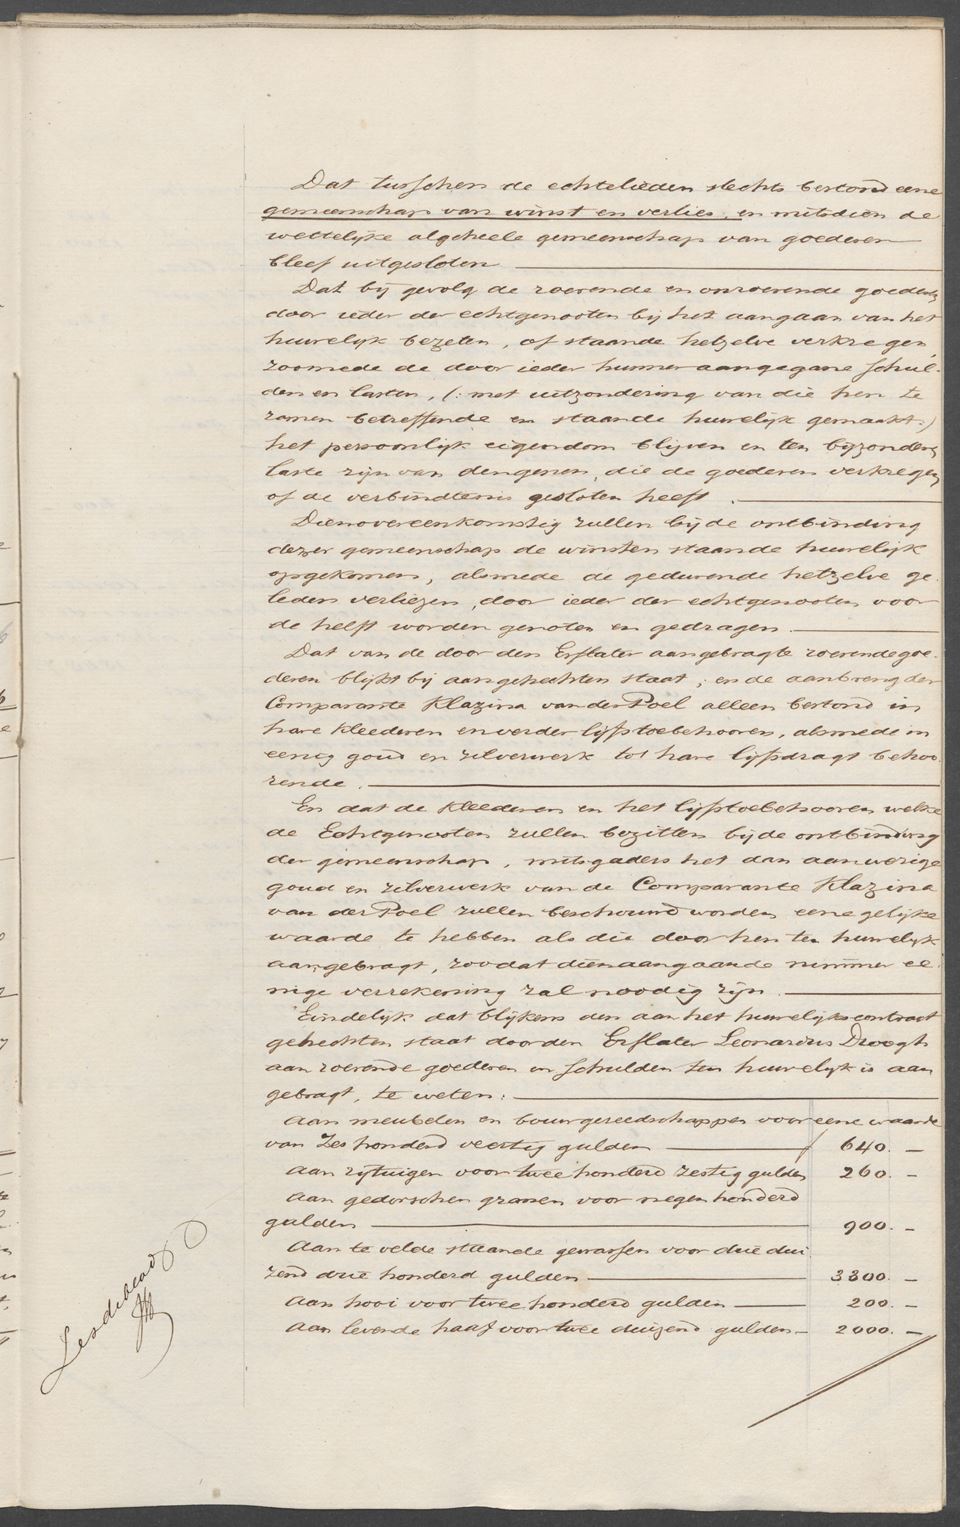 Dat tusschen de echtelieden slechts bestond eene
gemeenschap van winst en verlies, en mitsdien de
wettelijke algeheele gemeenschap van goederen
bleef uitgesloten
Dat bij gevolg de roerende en onroerende goederen
door ieder der echtgenooten bij het aangaan van het
huwelijk bezeten, of staande hetzelve verkregen,
zoomede de door ieder hunner aangegane schul-
den en lasten, (: met uitzondering van die hen te
zamen betreffende en staande huwelijk gemaakt:)
het persoonlijk eigendom blijven en ten bijzonderen
laste zijn van dengenen, die de goederen verkregen,
of de verbindtenis gesloten heeft.
Dienovereenkomstig zullen bij de ontbinding
dezer gemeenschap de winsten staande huwelijk
opgekomen, alsmede de gedurende hetzelve ge-
leden verliezen, door ieder der echtgenooten voor
de helft worden genoten en gedragen.
Dat van de door den Erflater aangebragte roerende goe-
deren blijkt bij aangehechten staat, en de aanbreng der
Comparante Klazina van der Poel alleen bestond in
hare kleederen en verder lijfstoebehooren, alsmede in
eenig goud en zilverwerk tot hare lijfsdragt behoo-
rende.
En dat de kleederen en het lijfstoebehooren welke
de Echtgenooten zullen bezitten bij de ontbinding
der gemeenschap, mitsgaders het dan aanwezige
goud en zilverwerk van de Comparante Klazina
van der Poel zullen beschouwd worden eene gelijke
waarde te hebben als die door hen ten huwelijk
aangebragt, zoodat dienaangaande nimmer ee-
nige verrekening zal noodig zijn.
Eindelijk dat blijkens den aan het huwelijkscontract
gehechten staat door den Erflater Leonardus Droogh
aan roerende goederen en schulden ten huwelijk is aan
gebragt, te weten:
Aan meubelen en bouwgereedschappen voor eene waarde
van Zes honderd veertig gulden f 640. –
Aan rijtuigen voor twee honderd zestig gulden 260. –
Aan gedorschen granen voor negen honderd
gulden 900. –
Aan te velde staande gewassen voor drie dui
zend drie honderd gulden 3300. –
Aan hooi voor twee honderd gulden 200. –
Aan levende haaf voor twee duizend gulden 2000. –
Zesdeblad